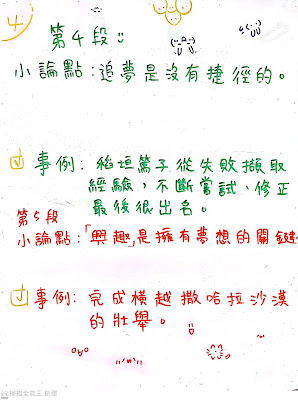 4
第4段
小論點:追夢是沒有捷徑的。
事例:稻垣篤子從失敗擷取
經驗,不斷嘗試、修正
最後很出名。
第5段
小論點:「興趣」是擁有夢想的關鍵
事例:完成橫越撒哈拉沙漠
的壯舉。
掃描全能王 創建